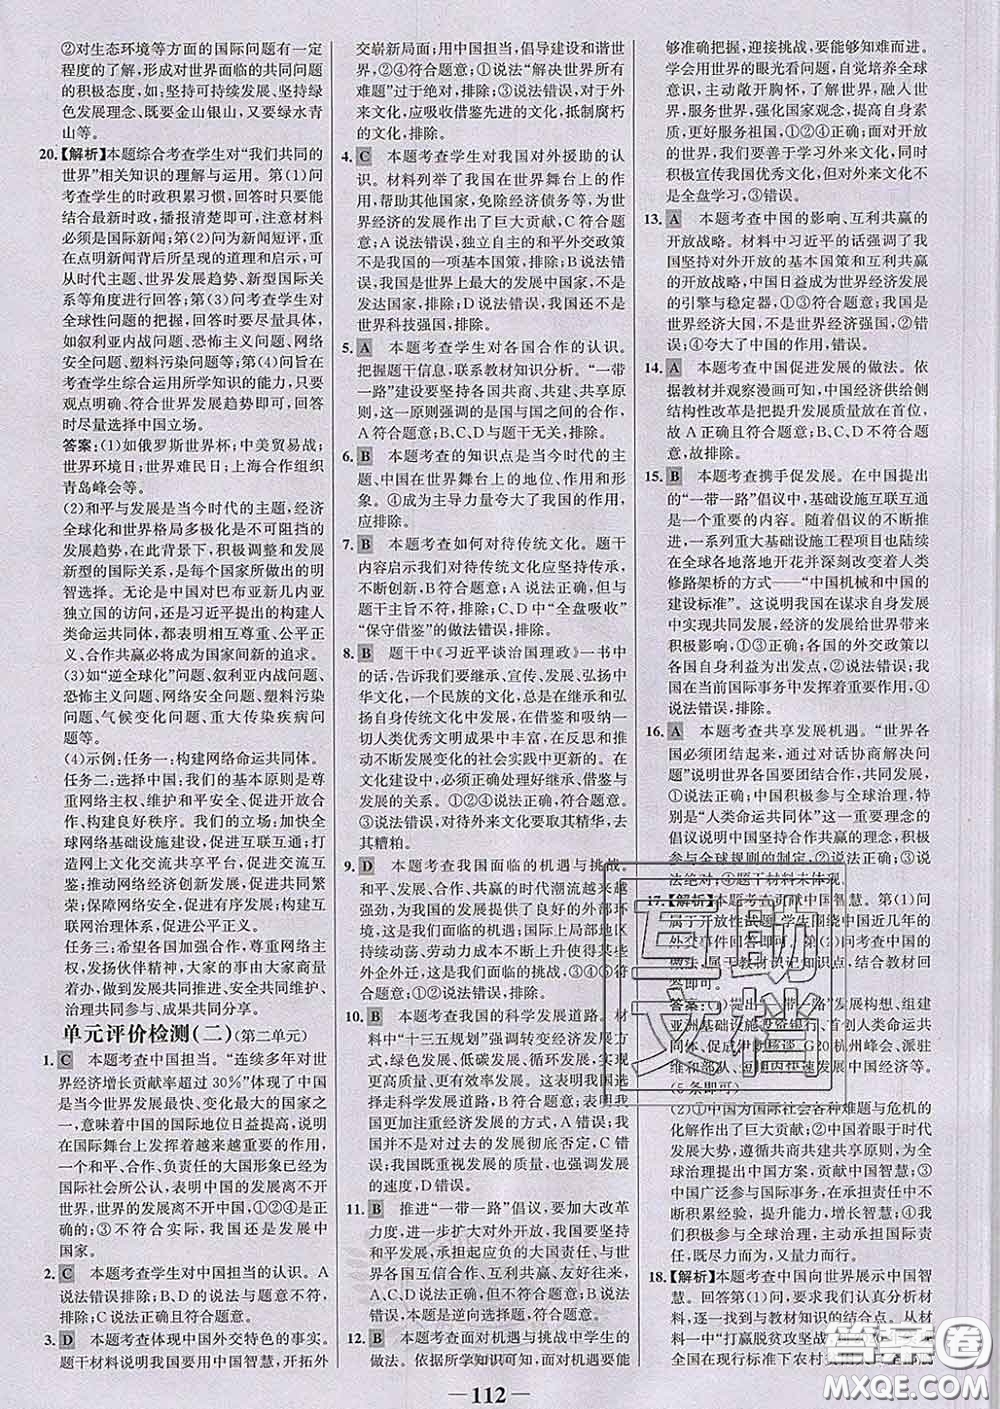 ②对生态环境等方面的国际问题有一定
程度的了解,形成对世界面临的共同问题
的积极态度,如:坚持可持续发展、坚持绿
色发展理念、既要金山银山,又要绿水青
山等。
20.【解析】本题综合考查学生对“我们共同的
世界”相关知识的理解与运用。第(1)问
考查学生的时政积累习惯,回答时只要能
结合最新时政,播报清楚即可,注意材料
必须是国际新闻;第(2)问为新闻短评,重
在点明新闻背后所呈现的道理和启示,可
从时代主题、世界发展趋势、新型国际关
系等角度进行回答;第(3)问考查学生对
全球性问题的把握,回答时要尽量具体,
如叙利亚内战问题、恐怖主义问题、网络
安全问题、塑料污染问题等;第(4)问旨在
考查学生综合运用所学知识的能力,只要
观点明确、符合世界发展趋势即可,回答
时尽量选择中国立场。
答案:(1)如俄罗斯世界杯;中美贸易战;
世界环境日;世界难民日;上海合作组织
青岛峰会等。
(2)和平与发展是当今时代的主题,经济
全球化和世界格局多极化是不可阻挡的
发展趋势,在此背景下,积极调整和发展
新型的国际关系,是每个国家所做的明
智选择。无论是中国对巴布亚新几内亚
独立国的访问,还是习近平提出的构建人
类命运共同体,都表明相互尊重、公平正
义、合作共赢必将成为国家间新的追求。
(3)如“逆全球化”问题、叙利亚内战问题、
恐怖主义问题、网络安全问题、塑料污染
问题、气候变化问题、重大传染疾病问
题等。
(4)示例:任务一:构建网络命运共同体。
任务二:选择中国;我们的基本原则是尊
重网络主权、维护和平安全、促进开放合
作、构建良好秩序。我们的立场:加快全
球网络基础设施建设,促进互联互通;
打造网上文化交流共享平台,促进交流互
鉴;推动网络经济创新发展,促进共同繁
荣;保障网络安全,促进有序发展;构建互
联网治理体系,促进公平正义。
任务三:希望各国加强合作,尊重网络主
权,发扬伙伴精神,大家的事由大家商量
着办,做到发展共同推进、安全共同维护、
治理共同参与、成果共同分享。
单元评价检测(二)(第二单元)
1. C 本题考查中国担当。“连续多年对世
界经济增长贡献率超过30%”体现了中国
是当今世界发展最快、变化最大的国家之
一,意味着中国的国际地位日益提高,说
明在国际舞台上发挥着越来越重要的作用,
一个和平、合作、负责任的大国形象已经为
国际社会所公认,表明中国的发展离不开
世界,世界的发展离不开中国,①②④是正
确的;③不符合实际,我国还是发展中
国家。
2. C 本题考查学生对中国担当的认识。A
说法错误排除;B、D的说法与题意不符,
排除;C说法正确且符合题意。
3. D 本题考查体现中国外交特色的事实。
题干材料说明我国要用中国智慧,开拓外
交崭新局面;用中国担当,倡导建设和谐世
界,②④符合题意;①说法“解决世界所有
难题”过于绝对,排除;③说法错误,对于
外来文化,应吸收借鉴先进的文化,抵制腐朽
的文化,排除。
4. C 本题考查学生对我国对外援助的认
识。材料列举了我国在世界舞台上的作
用,帮助其他国家、免除经济债务等,为世
界经济的发展作出了巨大贡献,C符合题
意;A说法错误,独立自主的和平外交政策
不是我国的一项基本国策,排除;B说法错
误,我国是世界上最大的发展中国家,不是
发达国家,排除;D说法错误,我国还不是
世界科技强国,排除。
5. A 本题考查学生对各国合作的认识。
把握题干信息,联系教材知识分析。“一带
一路”建设要坚持各国共商、共建、共享原
则,这一原则强调的是国与国之间的合作,
A符合题意;B、C、D与题干无关,排除。
6. B 本题考查的知识点是当今时代的主
题、中国在世界舞台上的地位、作用和形
象。④成为主导力量夸大了我国的作用,
应排除。
7. B 本题考查如何对待传统文化。题干
内容启示我们对待传统文化应坚持传承,
不断创新,B符合题意;A说法正确,但与
题干主旨不符,排除;C、D中“全盘吸收”
“保守借鉴”的做法错误,排除。
8. B 题干中《习近平谈治国理政》一书中
的话,告诉我们要继承、宣传、发展、弘扬中
华文化,一个民族的文化,总是在继承和弘
扬自身传统文化中发展,在借鉴和吸纳一
切人类优秀文明成果中丰富,在反思和推
动不断发展变化的社会实践中更新的。在
文化建设中,必须处理好继承、借鉴与
发展的关系。①②④说法正确,符合题意;
③说法错误,对待外来文化要取其精华,去
其糟粕。
9. D 本题考查我国面临的机遇与挑战。
和平、发展、合作、共赢的时代潮流越来越
强劲,为我国的发展提供了良好的外部环
境,这是我们面临的机遇;国际上局部地区
持续动荡、劳动力成本不断上升使得某些
外企外迁,这是我们面临的挑战,③④①符
合题意;②说法错误,排除。
10. B 本题考查我国的科学发展道路。材
料中“十三五规划”强调转变经济发展方
式,绿色发展、低碳发展、循环发展,实现
经济与社会、人与自然的可持续发展,坚
持走科学发展道路,B符合题意;我国并
没有更加注重经济发展的方式,A错误;我
国并不是对过去的发展彻底否定,C错
误;我国既重视发展的质量,也重视发展
的速度,D错误。
11. B 推进“一带一路”倡议,要加大改革
力度,进一步扩大对外开放,我国要坚持
和平发展,承担起应负的大国责任,与世
界各国互信合作、互利共赢、友好往来,
A、C、D说法正确,但不符合题意;B说法
错误,符合题意,本题是逆向选择题,符合题意。
12. B 本题考查面对机遇与挑战中学生的
做法。依据所学知识可知,面对机遇要能
够准确把握,迎接挑战,要能够知难而进。
学会用世界的眼光看问题,自觉培养全球
意识,主动敞开胸怀,了解世界,融入世
界,服务世界,强化国家观念,提高自身素
质,更好地服务祖国,①②④正确;面对开放
的世界,我们既要学习外来文化,也要积
极宣传我国优秀文化,但对外来文化不是
全盘学习,③错误。
13. A 本题考查中国的影响、互利共赢的
开放战略。材料中习近平的话强调了我
国坚持对外开放的基本国策和互利共赢
的开放战略,中国日益成为世界经济发展
的引擎与稳定器,①③符合题意;我国是
世界经济大国,不是世界经济强国,②错
误;④夸大了中国的作用,错误。
14. A 本题考查中国促进发展的做法。依
据教材并观察漫画可知,中国经济供给侧
结构性改革是把提升发展质量放在首位,
故A正确且符合题意;B、C、D不符合题
意,故排除。
15. B 本题考查携手促发展。在中国提出
的“一带一路”倡议中,基础设施互联互通
是一个重要的内容。随着倡议的不断推
进,一系列重大基础设施工程项目也陆续
在全球各地落地开花并深刻改变着人类
修路架桥的方式——“中国机械和中国的
建设标准”。这说明我国在谋求自身发展
中实现共同发展,我国的发展为世界带来
积极影响,①③正确;各国的外交政策以
维护国家利益为出发点,②说法错误;我国
在当前国际事务中发挥着重要作用,④
说法错误,排除。
16. A 本题考查共享发展机遇。“世界各
国必须团结起来,通过对话协商解决问
题”说明世界各国要团结合作,共同发展,
①正确;中国积极参与全球治理,
特别是“人类命运共同体”这一重要理念的
倡议说明中国坚持合作共赢的理念,积极
参与全球规则的制定,②正确;③说
法绝对;④题干材料未体现。
17.【解析】本题考查贡献中国智慧。第(1)问
属于开放性试题,学生围绕中国近几年的
外交事件回答即可。第(2)问考查中国的
做法,属于教材识记知识点,结合教材回
答即可。
答案:(1)提出“一带一路”发展构想、组建
亚洲基础设施投资银行、首倡人类命运共
同体、促成伊朗核谈、G20杭州峰会、派驻
维和部队、
(5条即可)
(2)①中国为国际社会各种难题与危机的
化解作出了巨大贡献;②中国勇于承担
大义,遵循共商共建共享原则,为
全球治理提出中国方案,贡献中国智慧;③
中国广泛参与国际事务,在承担责任中
不断积累经验,提升参与能力与智慧;④我
们关注世界、胸怀天下,主动承担国际责任,
尽力而为,又量力而行。
18.【解析】本题考查中国向世界展示中国智
慧。回答第(1)问,要求我们认真分析材
料,找到与教材知识的结合点。从材料一
材料一中“打赢脱贫攻坚战
全国在现行标准下农村贫困人口全部脱
— 112 —
互助
文档
答案圈
MXQE.COM